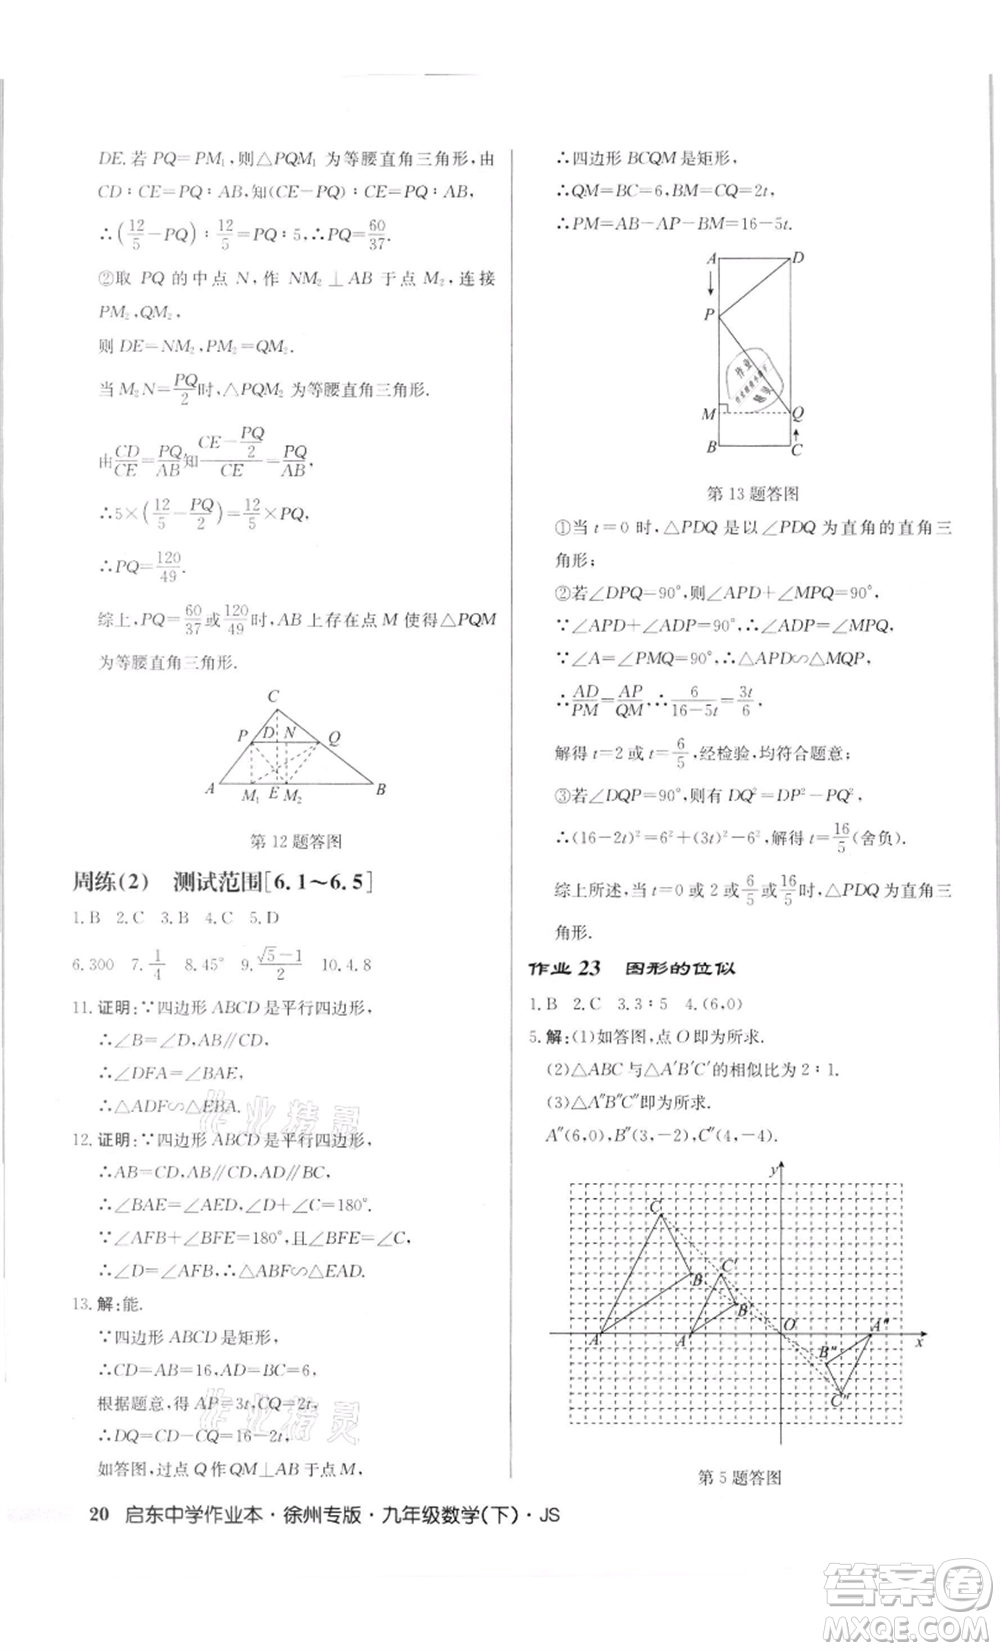 DE.若PQ=PM₁,则△PQM₁为等腰直角三角形,由
CD∶CE=PQ∶AB,知(CE-PQ)∶CE=PQ∶AB,
∴(12/5-PQ)∶12/5=PQ∶5,∴PQ=60/37.
②取 PQ 的中点 N,作 NM₂⊥AB 于点 M₂,连接
PM₂,QM₂,
则 DE=NM₂,PM₂=QM₂.
当 M₂N=PQ/2时,△PQM₂为等腰直角三角形.
由CD/CE=PQ/AB知(CE-PQ/2)/CE=PQ/AB,
∴5×(12/5-PQ/2)=12/5×PQ,
∴PQ=120/49.
综上,PQ=60/37或120/49时,AB上存在点M使得△PQM
为等腰直角三角形.
C
P D N Q
A M₁ E M₂ B
第12题答图
周练(2) 测试范围[6.1～6.5]
1.B 2.C 3.B 4.C 5.D
6.300 7.1/4 8.45° 9.(√5-1)/2 10.4.8
11.证明:∵四边形ABCD是平行四边形,
∴∠B=∠D,AB∥CD,
∴∠DFA=∠BAE,
∴△ADF∽△EBA.
12.证明:∵四边形ABCD是平行四边形,
∴AB=CD,AB∥CD,AD∥BC,
∴∠BAE=∠AED,∠D+∠C=180°.
∵∠AFB+∠BFE=180°,且∠BFE=∠C,
∴∠D=∠AFB,∴△ABF∽△EAD.
13.解:能.
∵四边形ABCD是矩形,
∴CD=AB=16,AD=BC=6.
根据题意,得AP=3t,CQ=2t,
∴DQ=CD-CQ=16-2t,
如答图,过点Q作QM⊥AB于点M,
20 启东中学作业本·徐州专版·九年级数学(下)·JS
∴四边形BCQM是矩形,
∴QM=BC=6,BM=CQ=2t,
∴PM=AB-AP-BM=16-5t.
A D
P
M Q
B C
第13题答图
①当t=0时,△PDQ是以∠PDQ为直角的直角三
角形;
②若∠DPQ=90°,则∠APD+∠MPQ=90°,
∵∠APD+∠ADP=90°,∴∠ADP=∠MPQ,
∵∠A=∠PMQ=90°,∴△APD∽△MQP,
∴AD/PM=AP/QM,∴6/(16-5t)=3t/6.
解得t=2或t=6/5,经检验,均符合题意;
③若∠DQP=90°,则有DQ²=DP²-PQ²,
∴(16-2t)²=6²+(3t)²-6²,解得t=16/5(舍负).
综上所述,当t=0或2或6/5或16/5时,△PDQ为直角三
角形.
作业23 图形的位似
1.B 2.C 3.3∶5 4.(6,0)
5.解:(1)如答图,点O即为所求.
(2)△ABC与△A′B′C′的相似比为2∶1.
(3)△A″B″C″即为所求.
A″(6,0),B″(3,-2),C″(4,-4).
y
C
B C′
B′
A A O A″ x
B″
C″
第5题答图
作业精灵
作业精灵
答案卷
MXQE.COM